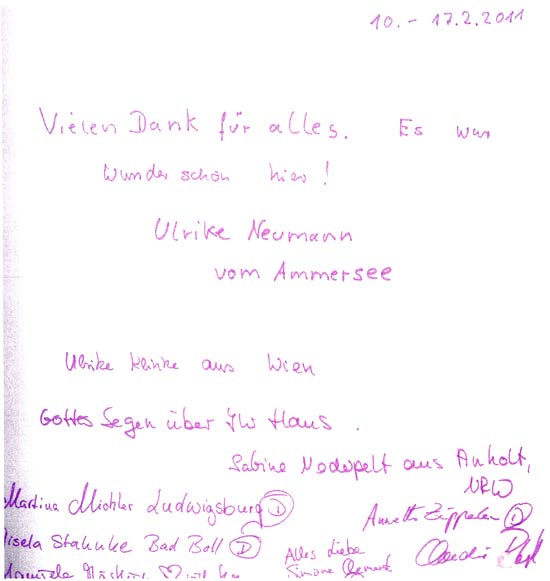 10. - 17.2.2011
Vielen Dank für alles. Es war
wunderschön hier!
Ulrike Neumann
vom Ammersee
Ulrike Klinke aus Wien
Gottes Segen über Ihr Haus.
Sabine aus Anholt,
NRW
Martina Michler Ludwigsburg D
Annette D
Gisela Stahnke Bad Boll D
Alles Liebe
Simone
Claudia